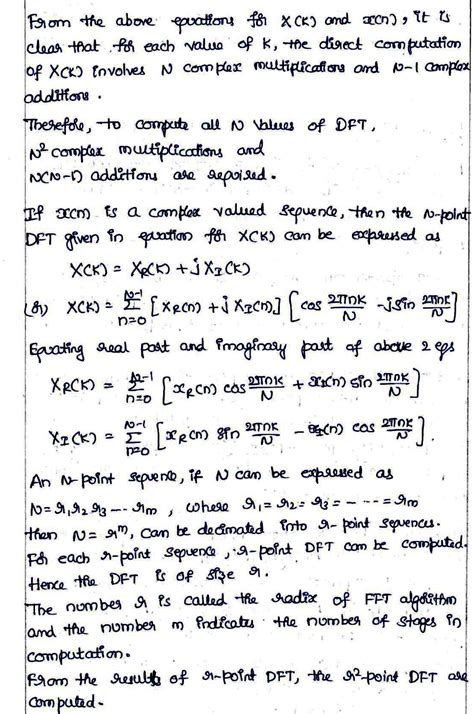 From the above equations for X(K) and x(n), it is
clear that for each value of K, the direct computation
of X(K) involves N complex multiplications and N-1 complex
additions.
Therefore, to compute all N values of DFT,
N² complex multiplications and
N(N-1) additions are required.
If x(n) is a complex valued sequence, then the N-point
DFT given in equation for X(K) can be expressed as
X(K) = X_R(K) + j X_I(K)
(or) X(K) = Σ_{n=0}^{N-1} [x_R(n) + j x_I(n)] [cos 2πnK/N - j sin 2πnK/N]
Equating real part and imaginary part of above 2 eqs
X_R(K) = Σ_{n=0}^{N-1} [x_R(n) cos 2πnK/N + x_I(n) sin 2πnK/N]
X_I(K) = Σ_{n=0}^{N-1} [x_R(n) sin 2πnK/N - x_I(n) cos 2πnK/N].
An N-point sequence, if N can be expressed as
N = r₁ r₂ r₃ --- r_m, where r₁ = r₂ = r₃ = - --- = r_m
then N = r^m, can be decimated into r-point sequences.
For each r-point sequence, r-point DFT can be computed.
Hence the DFT is of size r.
The number r is called the radix of FFT algorithm
and the number m indicates the number of stages in
computation.
From the results of r-point DFT, the r²-point DFT are
computed.